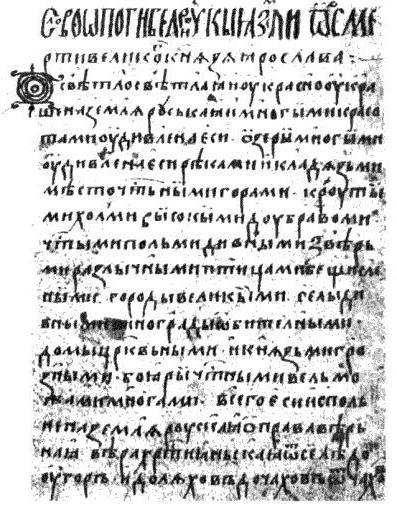 Слово ѡ погибели рускыꙗ земли ѡ сме
рти великого кнѧзѧ ꙗрослава ·
Ѡ свѣтло свѣтлаꙗ и оукрасно оукра
шена землѧ руськаꙗ и многыми красо
тами оудивлена еси · ѡзеры многыми
оудивлена еси рѣками и кладѧзьми
мѣсточтьными горами · кроутыи
ми холми высокыми доубравоми
чтыми польми дивными звѣрь
ми разлычными птицами бещисле
ными · городы великыми · селы ди
вными винограды ѡбителными ·
домы црквьными · и кнѧзьми гро
зными · боꙗры чтными вельмо
жами многами · всего еси испол
нена землѧ роускаꙗ ѡ прававѣрь
наꙗ вѣра хртиꙗньскаꙗ ѿселѣ до
оугоръ и до лѧховъ до чаховъ ѿ чахо